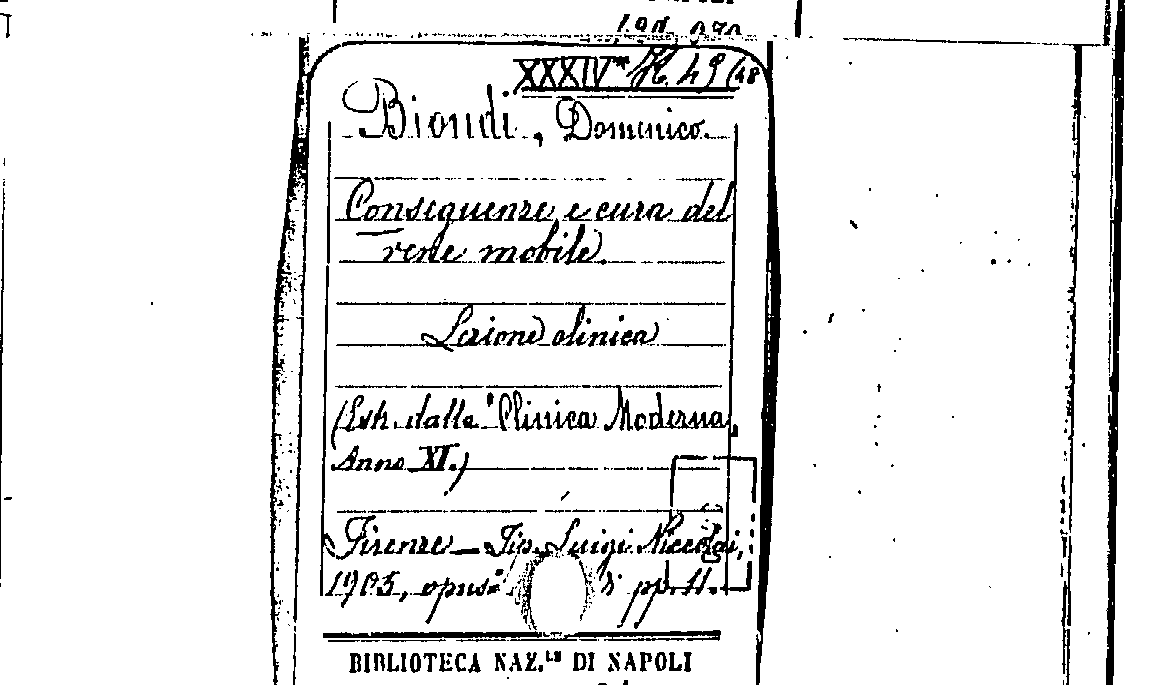 XXXIV* H. 49 (48
Biondi, Domenico.
Conseguenze e cura del
rene mobile.
Lezione clinica
(Estr. dalla "Clinica Moderna,
Anno XI.)
Firenze — Tip. Luigi Niccolai,
1905, opus= di pp. 11.
BIBLIOTECA NAZ.LE DI NAPOLI